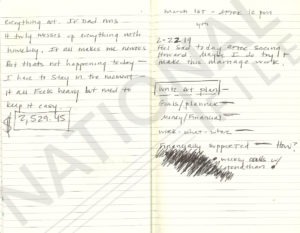 Everything out. If Dad runs
it truly messes up everything with
It all makes me nervous
But that's not happening today —
I have to stay in the moment
it all feels heavy but need to
keep it easy
$ 2,529.45
March 1st -
4th
Feel sad today after seeing
Howard. Maybe I do try to
make this marriage work.
Write Act plan —
Goals/planner —
Money/Financial —
work - what - where —
Financially supported — How?
• weekly
NATIONAL